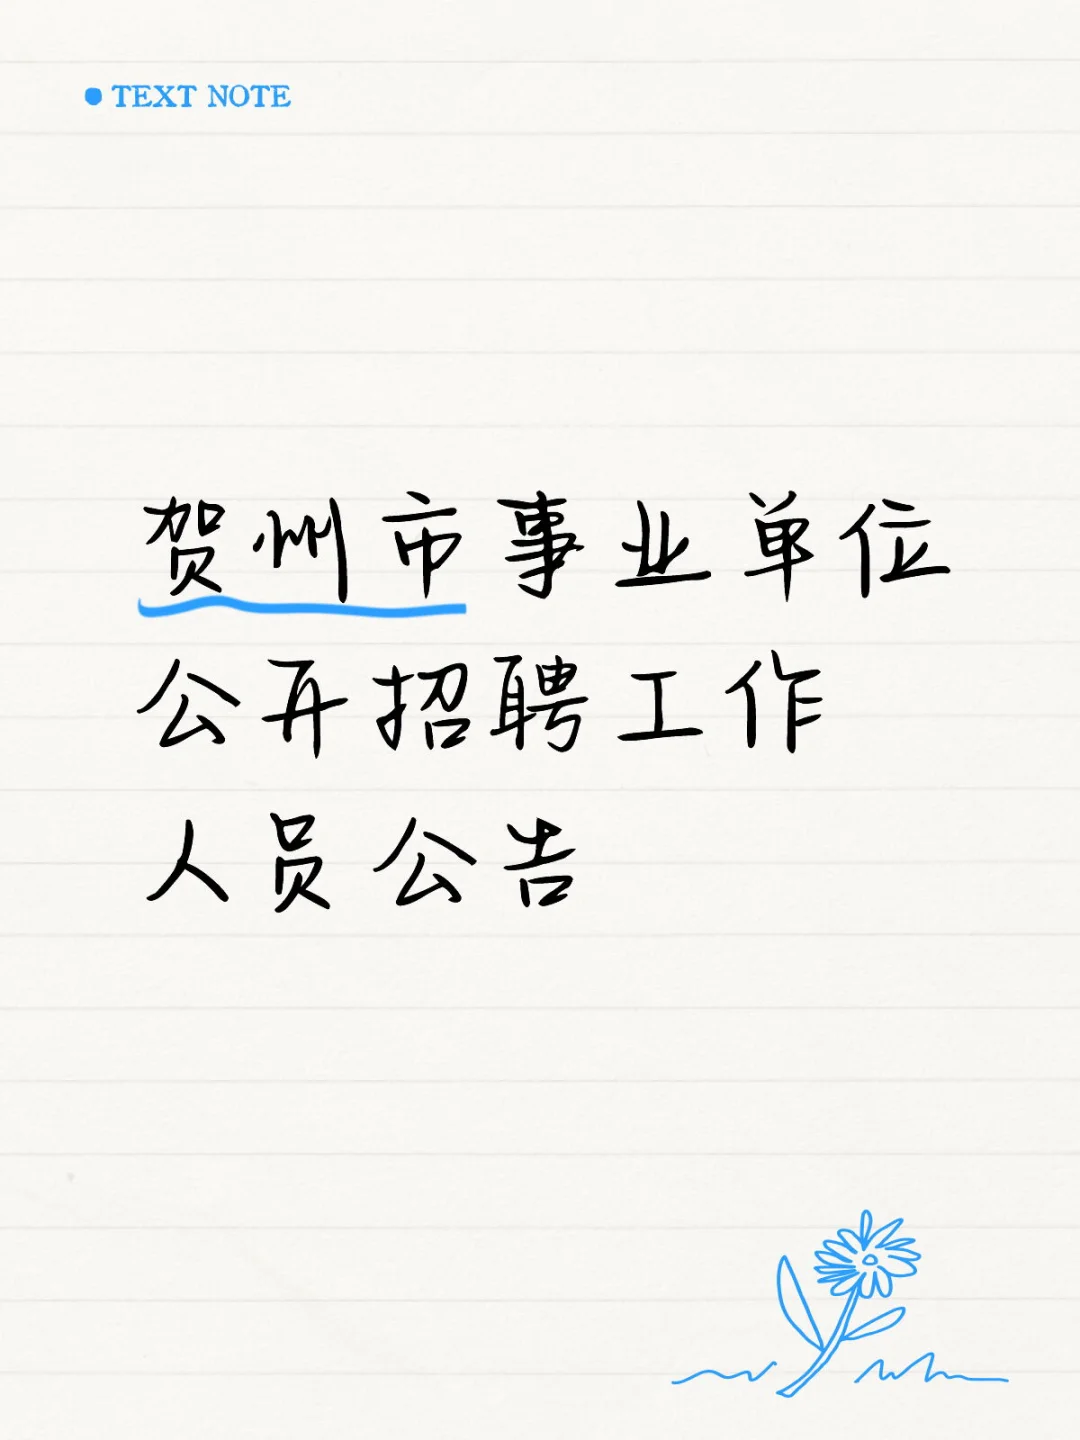 TEXT NOTE
贺州市事业单位
公开招聘工作
人员公告